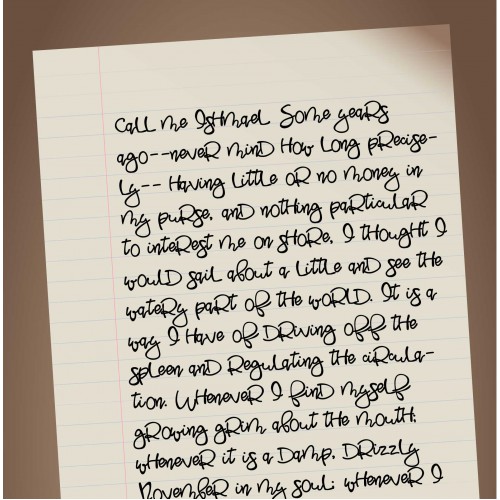 Call me Ishmael Some years
ago--never mind how long precise-
ly-- having little or no money in
my purse, and nothing particular
to interest me on shore, I thought I
would sail about a little and see the
watery part of the world. It is a
way I have of driving off the
spleen and regulating the circula-
tion. Whenever I find myself
growing grim about the mouth;
whenever it is a damp, drizzly
November in my soul; whenever I